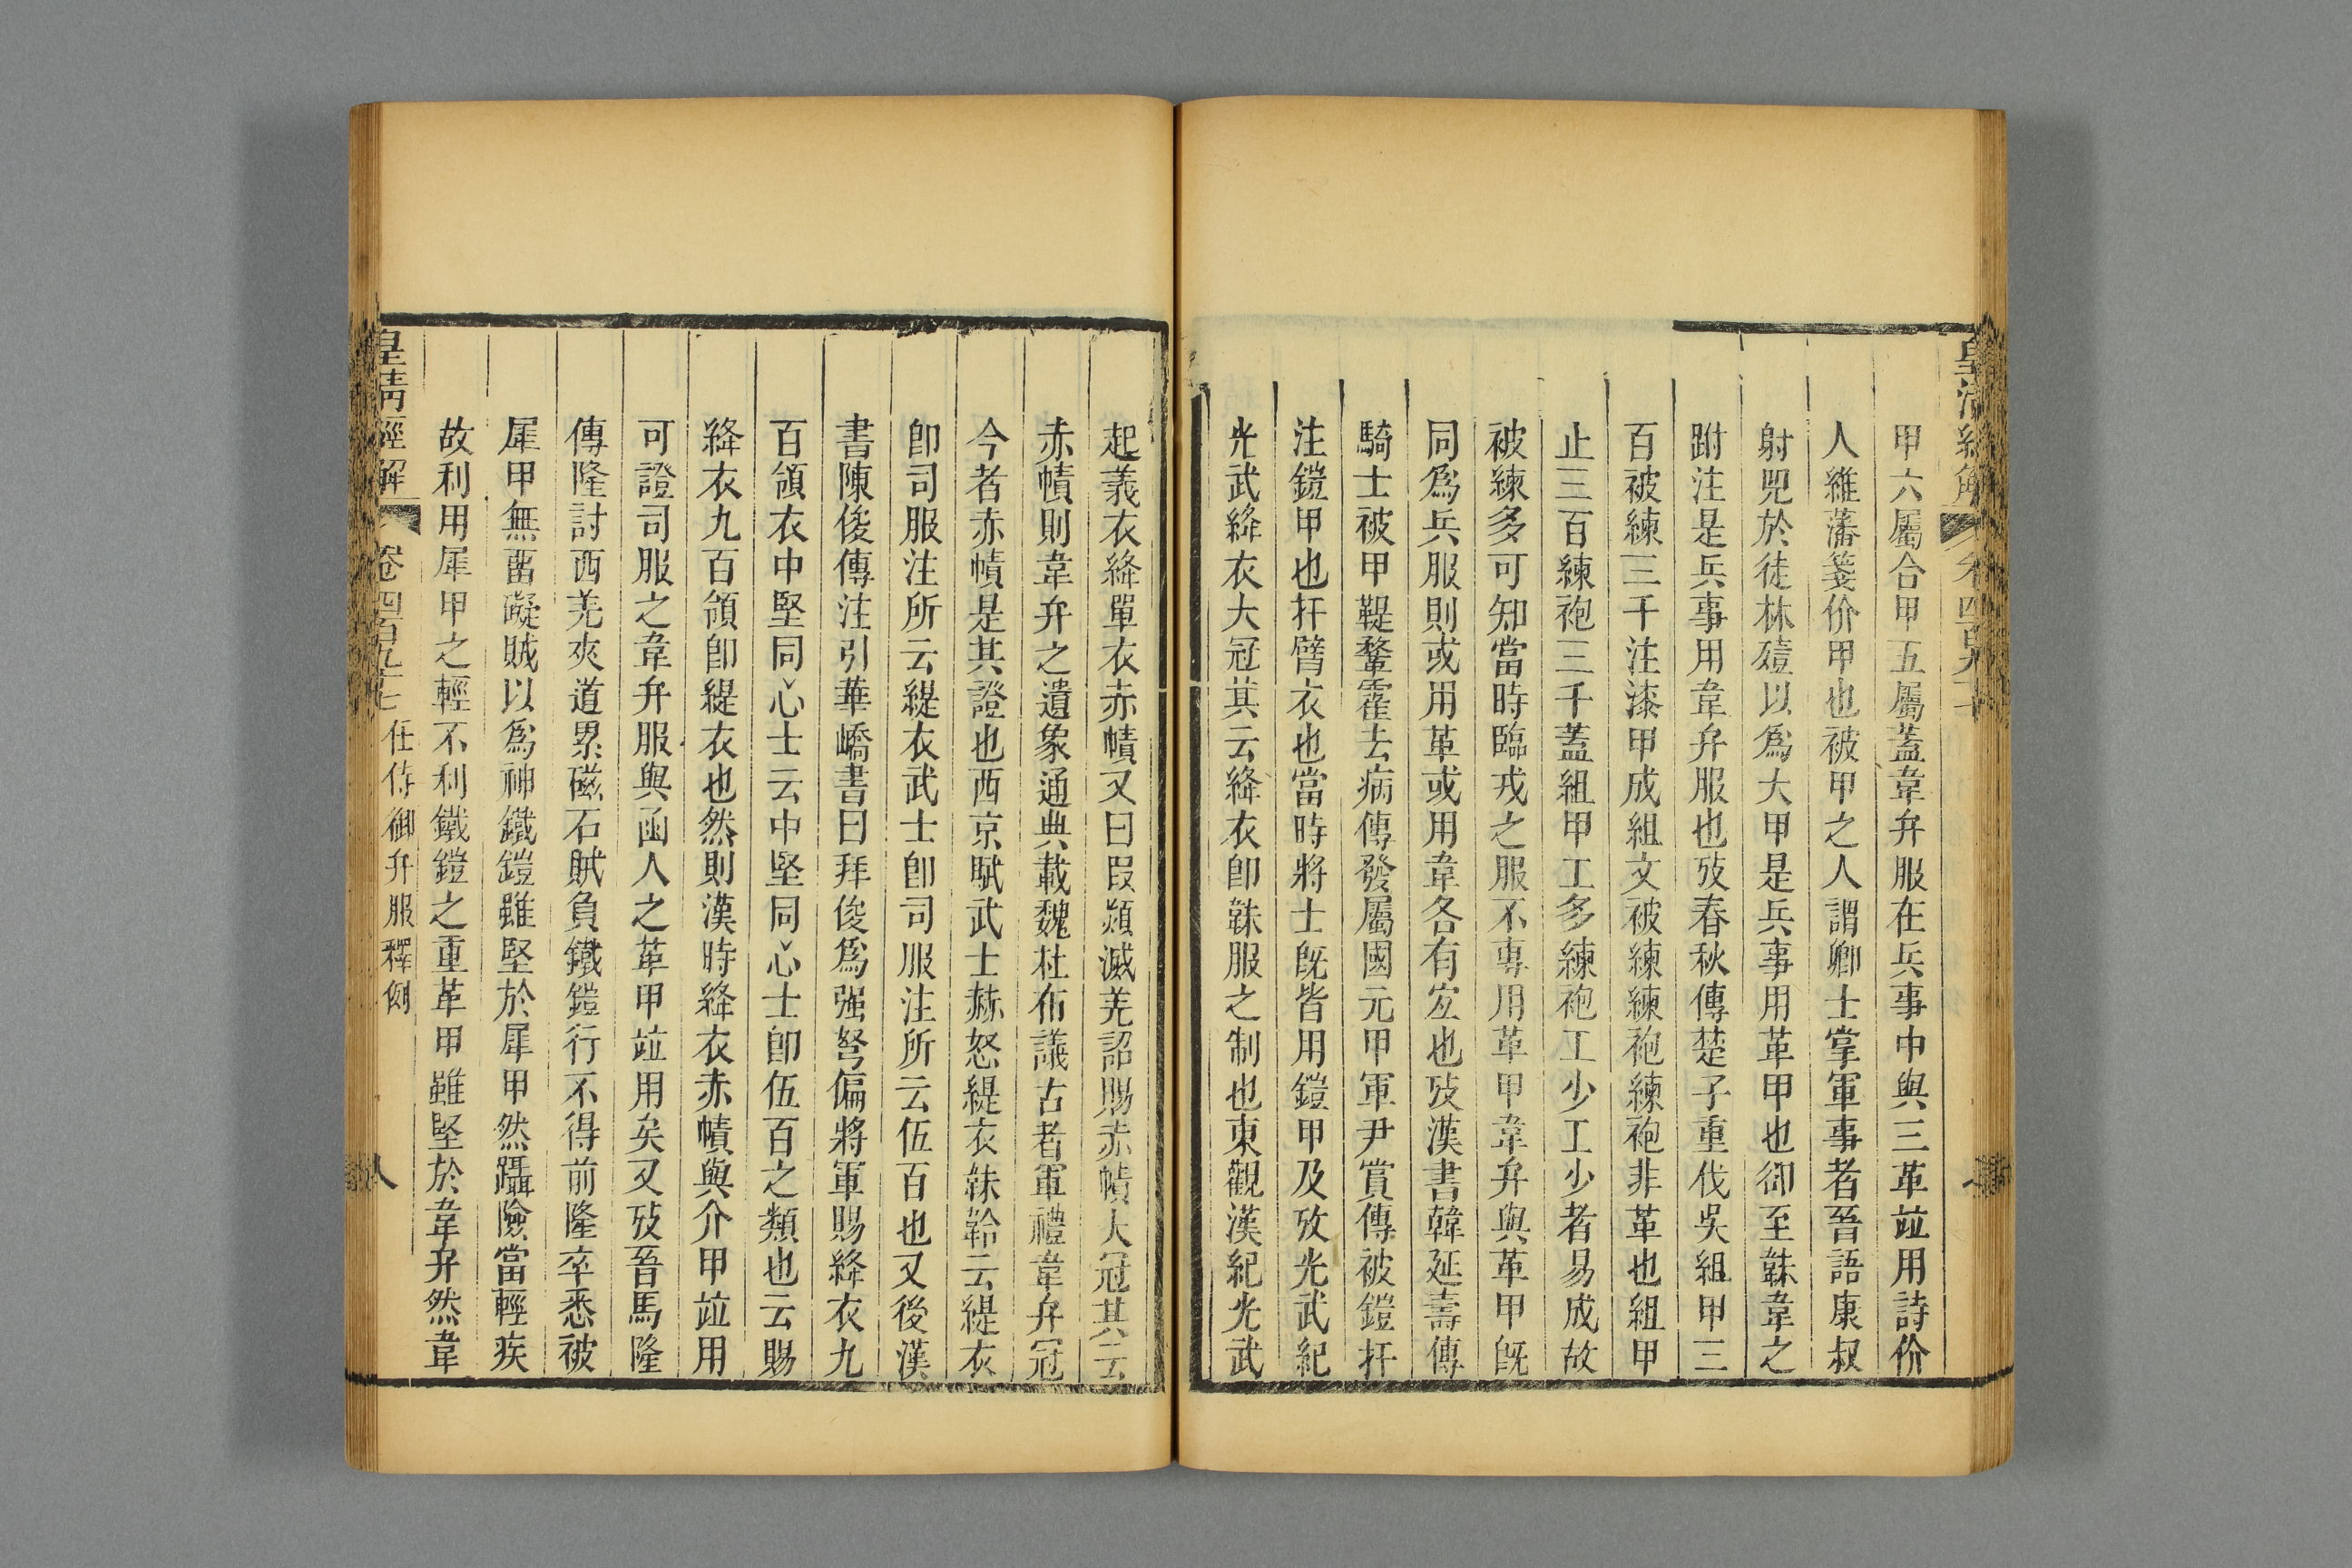 甲六屬合甲五屬蓋韋弁服在兵事中與三革竝用詩价
人維藩箋价甲也被甲之人謂卿士掌軍事者晉語唐叔
射兕於徒林殪以爲大甲是兵事用革甲也卻至韎韋之
跗注是兵事用韋弁服也攷春秋傳楚子重伐吳組甲三
百被練三千注漆甲成組文被練練袍練袍非革也組甲
止三百練袍三千蓋組甲工多練袍工少工少者易成故
被練多可知當時臨戎之服不專用革甲韋弁與革甲旣
同爲兵服則或用革或用韋各有宐也攷漢書韓延壽傳
騎士被甲鞮鞪霍去病傳發屬國元甲軍尹賞傳被鎧扞
注鎧甲也扞臂衣也當時將士旣皆用鎧甲及攷光武紀
光武絳衣大冠其云絳衣卽韎服之制也東觀漢紀光武
起義衣絳單衣赤幘又曰段熲滅羌詔賜赤幘大冠其云
赤幘則韋弁之遺象通典載魏杜布議古者軍禮韋弁冠
今者赤幘是其證也西京賦武士赫怒緹衣韎韐云緹衣
卽司服注所云緹衣武士卽司服注所云伍百也又後漢
書陳俊傳注引華嶠書曰拜俊爲强弩偏將軍賜絳衣九
百領衣中堅同心士云中堅同心士卽伍百之類也云賜
絳衣九百領卽緹衣也然則漢時絳衣赤幘與介甲竝用
可證司服之韋弁服與函人之革甲竝用矣又攷晉馬隆
傳隆討西羌夾道累磁石賊負鐵鎧行不得前隆卒悉被
犀甲無畱礙賊以爲神鐵鎧雖堅於犀甲然躡險當輕疾
故利用犀甲之輕不利鐵鎧之重革甲雖堅於韋弁然韋
皇清經解 卷四百九十七 任侍御弁服釋例 八